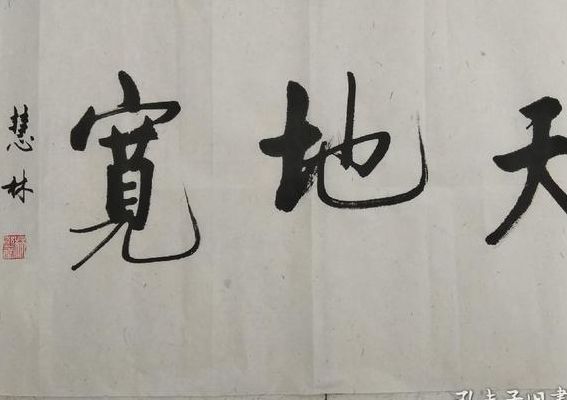 天地寬
慧林
孔夫子旧書